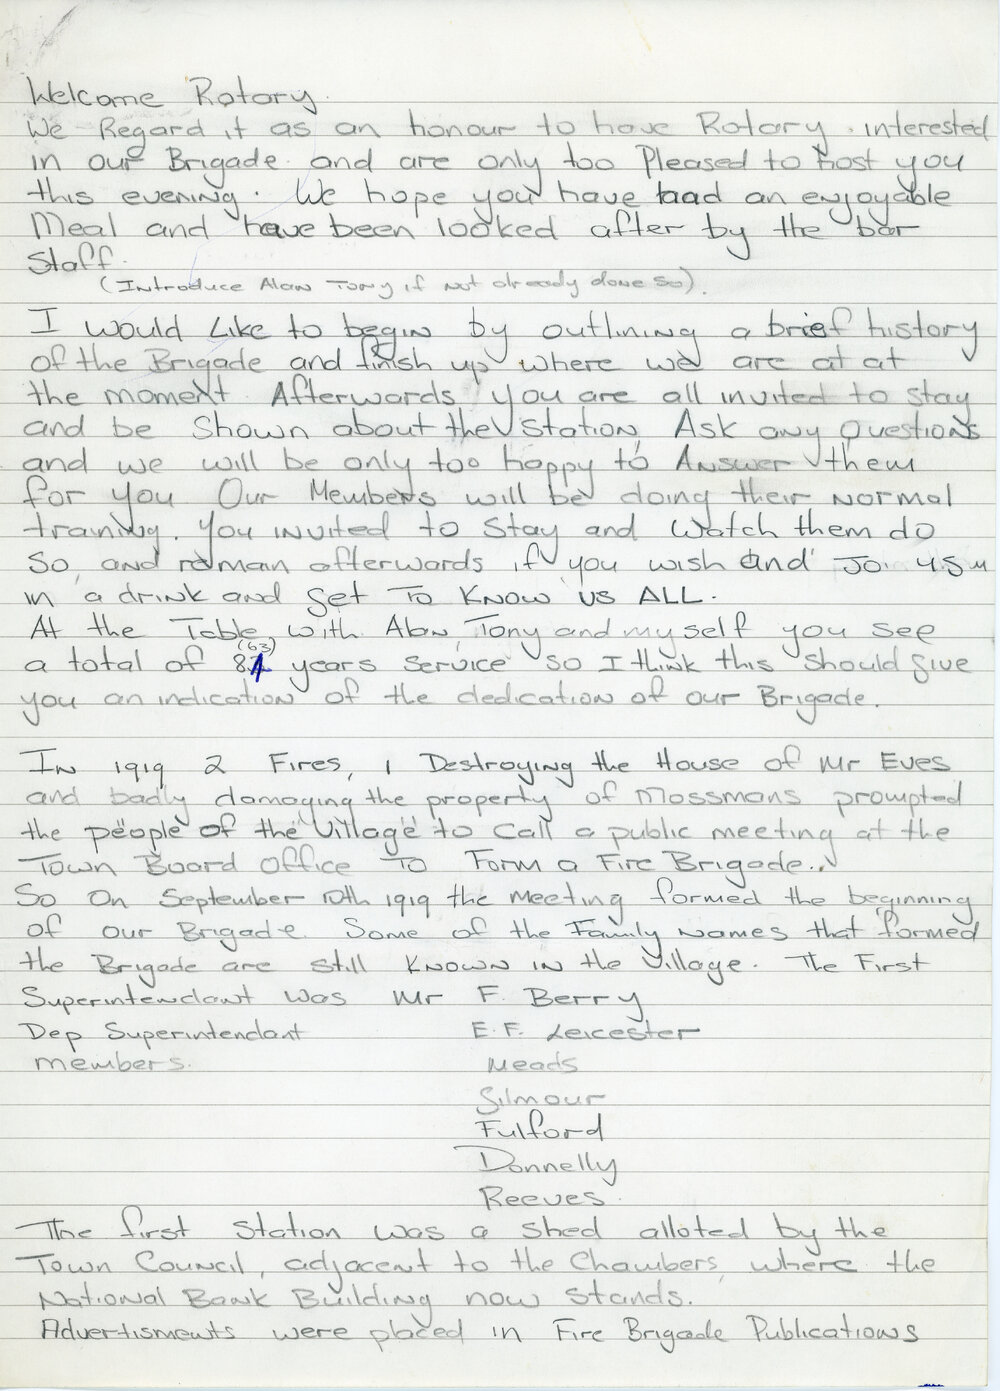 Welcome Rotory.
We Regard it as an honour to have Rotory interested
in our Brigade and are only too Pleased to host you
this evening. We hope you have had an enjoyable
Meal and have been looked after by the bar
Staff.
(Introduce Alan Tony if not already done so).
I would Like to begin by outlining a brief history
of the Brigade and finish up where we are at at
the moment. Afterwards you are all invited to stay
and be Shown about the Station, Ask any Questions
and we will be only too happy to Answer them
for you Our Members will be doing their normal
training. You invited to Stay and Watch them do
So, and remain afterwards if you wish and Join us
in a drink and Get To Know us ALL.
At the Table, with Alan, Tony and myself you see
(63)
a total of years Service so I think this should give
you an indication of the dedication of our Brigade.
In 1919 2 Fires, 1 Destroying the House of Mr Eves
and badly damaging the property of Mossmans prompted
the people of the Village to Call a public meeting at the
Town Board Office To Form a Fire Brigade..
So On September 10th 1919 the Meeting formed the beginning
of our Brigade. Some of the Family Names that formed
the Brigade are still Known in the Village. The First
Superintendant was Mr F. Berry
Dep Superintendant E.F. Leicester
members. Meads
Gilmour
Fulford
Donnelly
Reeves.
The first Station was a shed alloted by the
Town Council, adjacent to the Chambers, where the
National Bank Building now Stands.
Advertisments were placed in Fire Brigade Publications